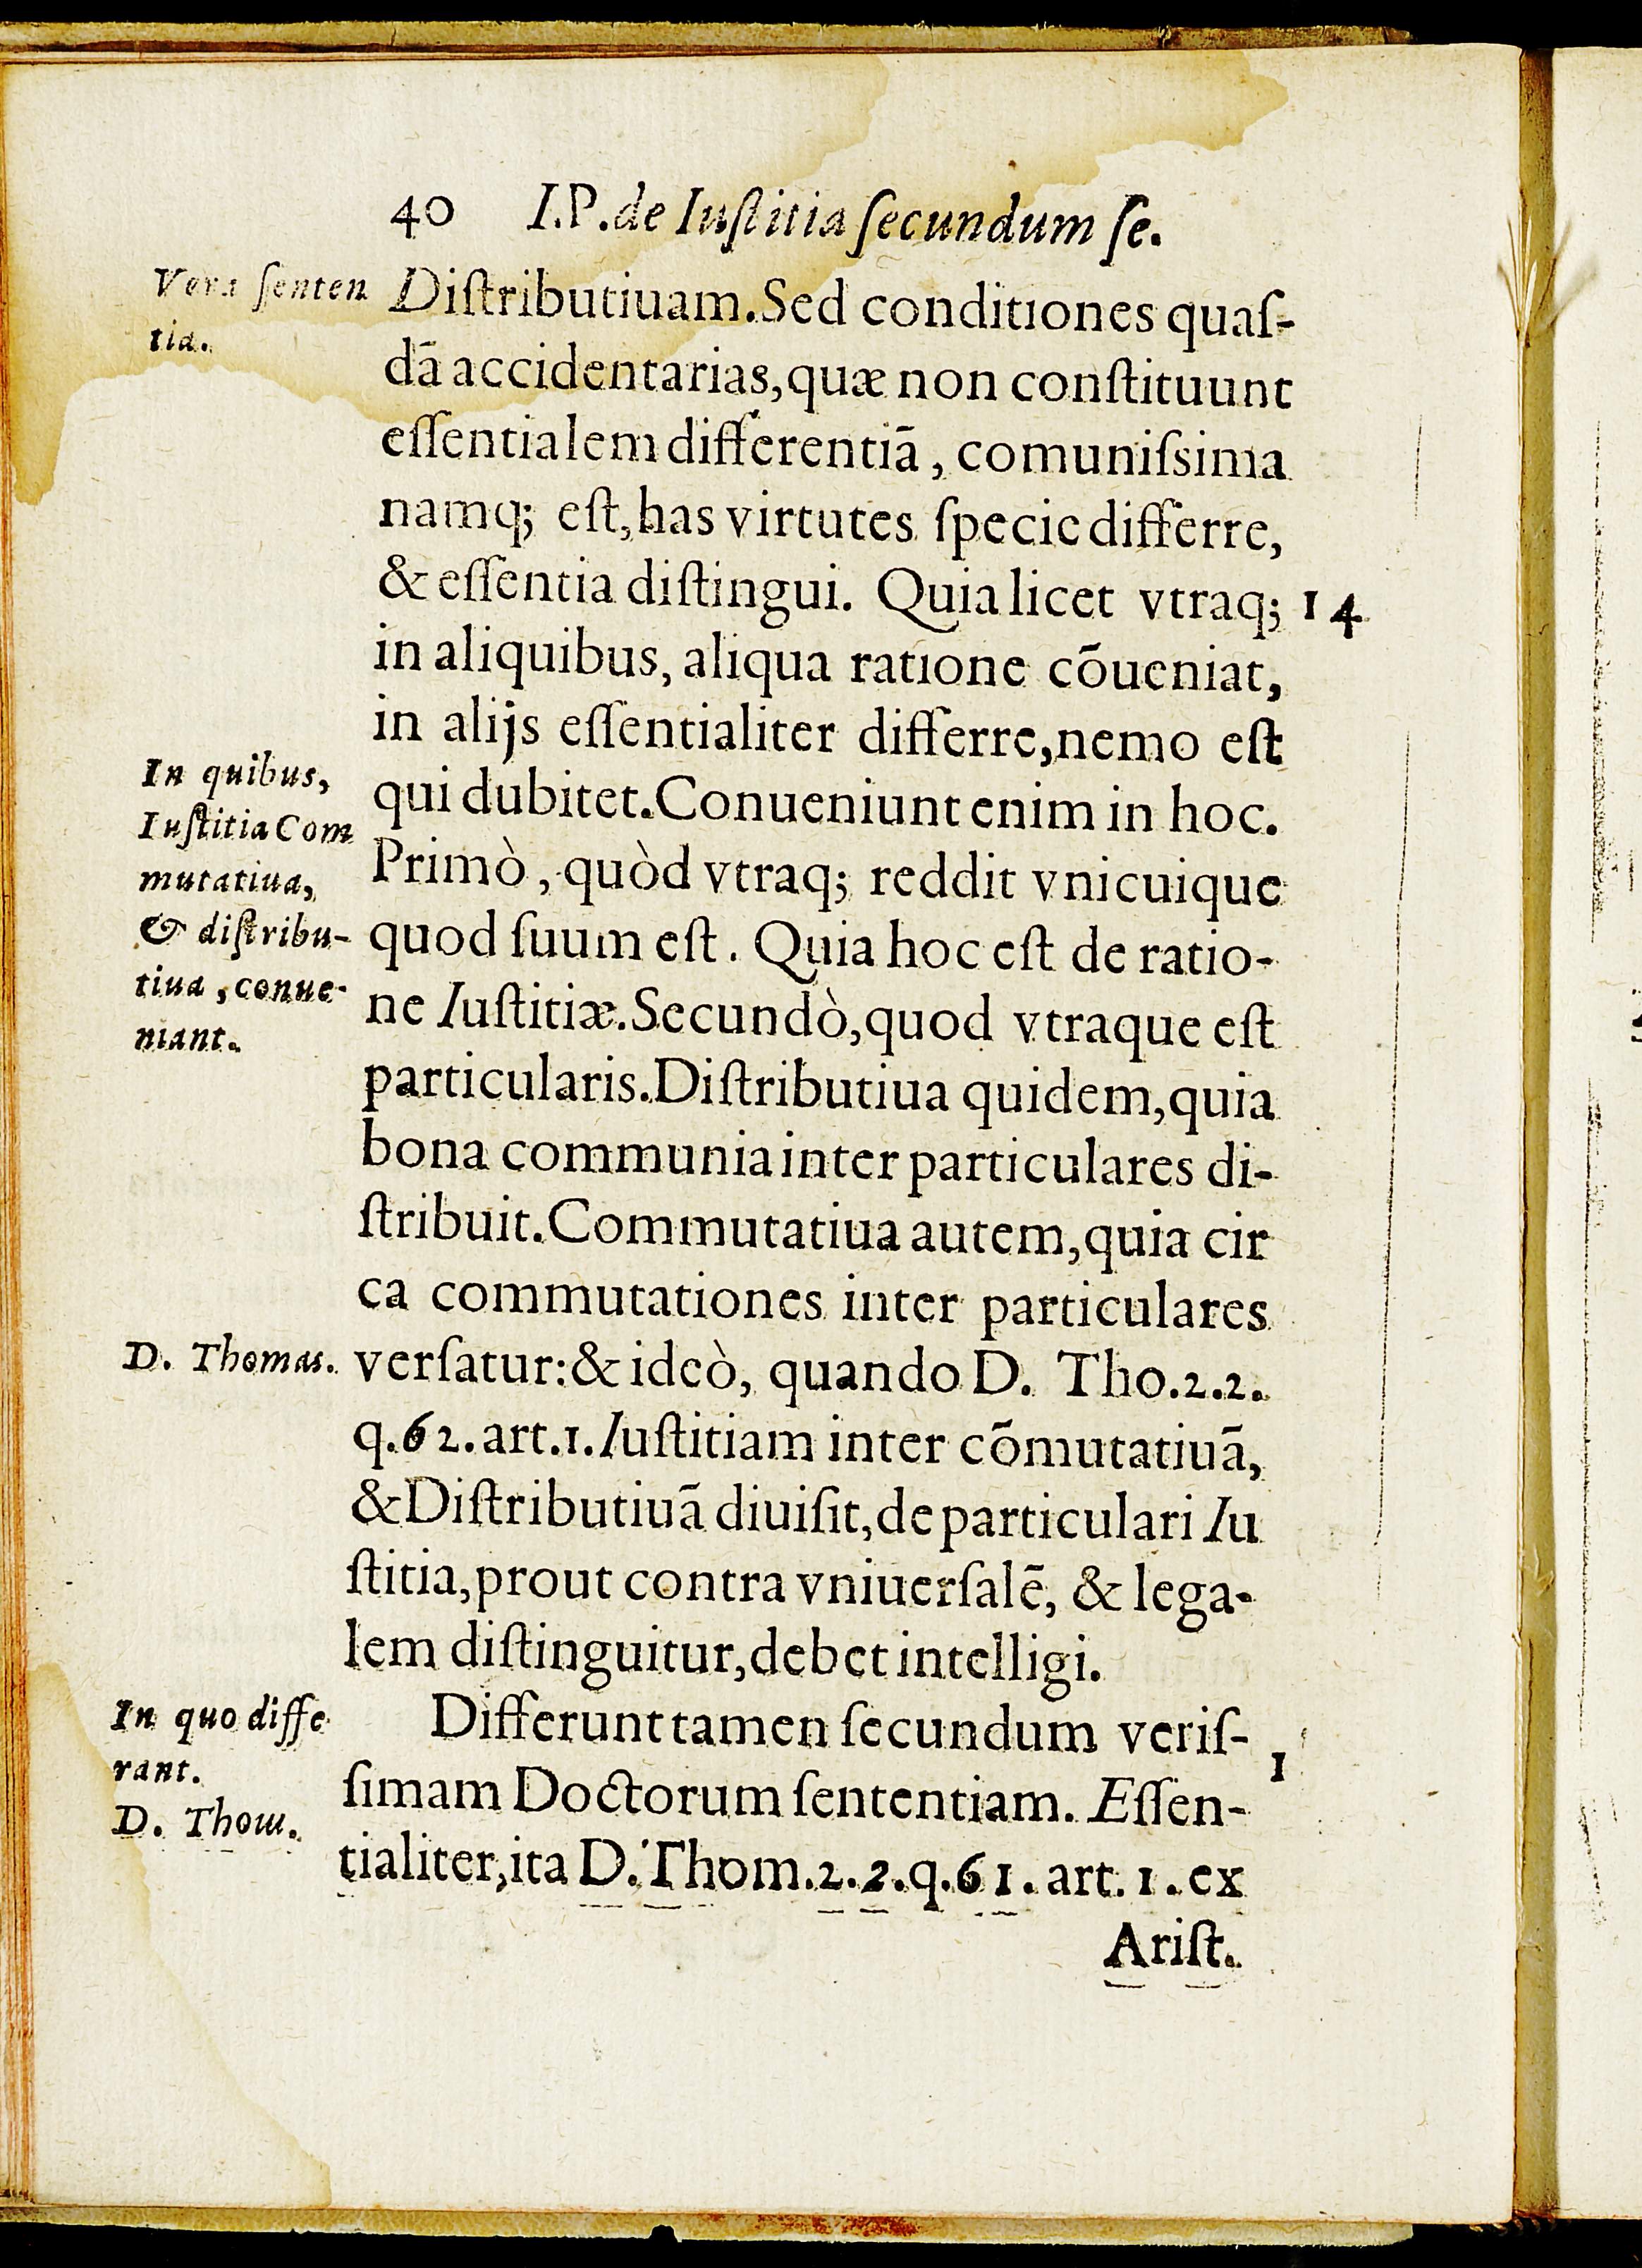 40 I.P. de Iuſtitia ſecundum ſe.
Vera ſenten
tia.
Diſtributiuam. Sed conditiones quaſ-
dã accidentarias, quæ non conſtituunt
eſſentialem differentiã, comuniſsima
namq; eſt, has virtutes ſpecie differre,
& eſſentia diſtingui. Quia licet vtraq; 14
in aliquibus, aliqua ratione cõueniat,
in alijs eſſentialiter differre, nemo eſt
qui dubitet. Conueniunt enim in hoc.
In quibus,
Iuſtitia Com
mutatiua,
& diſtribu-
tiua, conue-
niant.
Primò, quòd vtraq; reddit vnicuique
quod ſuum eſt. Quia hoc eſt de ratio-
ne Iuſtitiæ. Secundò, quod vtraque eſt
particularis. Diſtributiua quidem, quia
bona communia inter particulares di-
ſtribuit. Commutatiua autem, quia cir
ca commutationes inter particulares
D. Thomas.
verſatur: & ideò, quando D. Tho. 2.2.
q. 62. art. 1. Iuſtitiam inter cõmutatiuã,
& Diſtributiuã diuiſit, de particulari Iu
ſtitia, prout contra vniuerſalẽ, & lega-
lem diſtinguitur, debet intelligi.
In quo diffe
rant.
D. Thom.
Differunt tamen ſecundum veriſ- 1
ſimam Doctorum ſententiam. Eſſen-
tialiter, ita D. Thom. 2.2. q. 61. art. 1. ex
Ariſt.